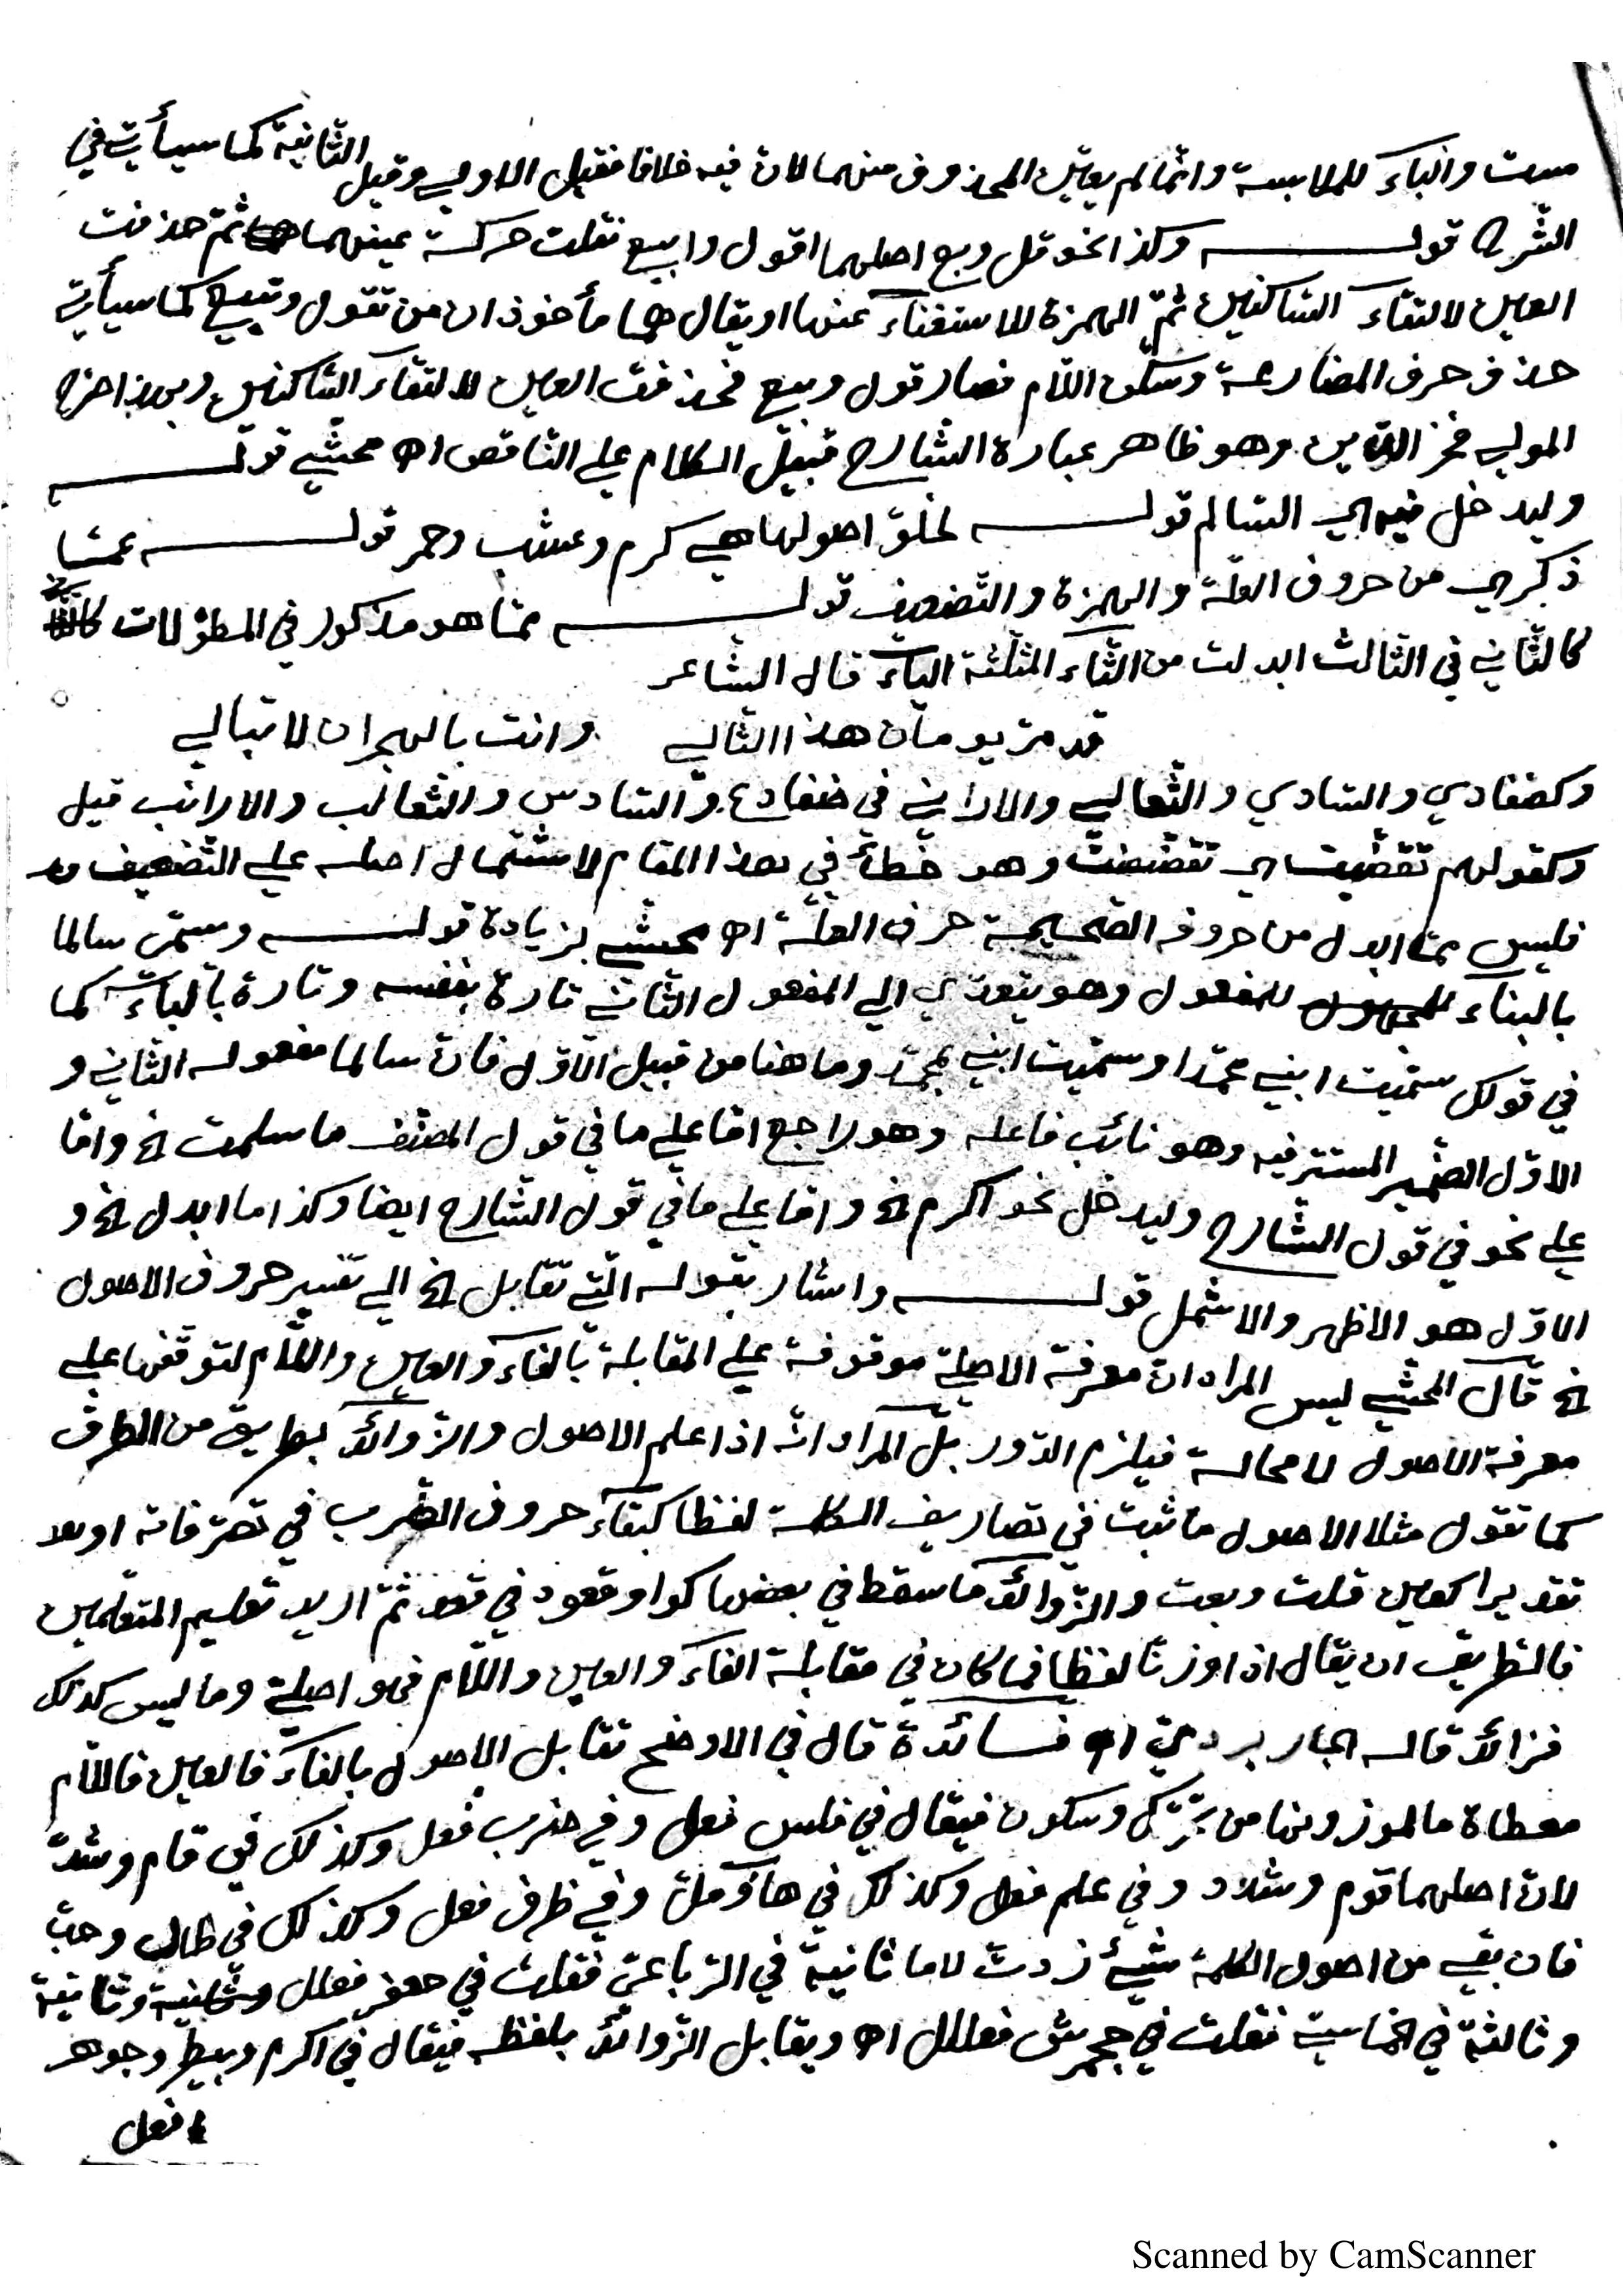 مست والباء للملابسة وانما لم يعين المحذوف منهما لان فيه خلافا فقيل الاولي وقيل الثانية كما سيأتي في
الشرح قولـــه وكذا نحو قل وبع اصلهما اقول وابيع نقلت حركة عينهما ثم حذفت
العين لالتقاء الساكنين ثم الهمزة للاستغناء عنها او يقال هما مأخوذان من تقول وتبيع كما سيأتي
حذف حرف المضارعة وسكن اللام فصار قول وبيع فحذفت العين لالتقاء الساكنين وبهذا صرح
المولي فخر الدين وهو ظاهر عبارة الشارح قبيل الكلام علي الناقص اه محشي قولـــه
وليدخل فيه اي السالم قولـــه لخلو اصولها هي كرم وعشب وحمر قولـــه عما
ذكر اي من حروف العلة والهمزة والتضعيف قولـــه مما هو مذكور في المطولات
كالثاني في الثالث ابدلت من الثاء المثلثة الياء قال الشاعر
قد مر يومان هذا الثالي وانت بالهجران لا تبالي
وكضفادي والسادي والثعالي والاراني في ضفادع والسادس والثعالب والارانب قيل
وكقولهم تقضيت اي تقضضت وهو خطأ في هذا المقام لاشتمال اصله علي التضعيف
فليس مما ابدل من حروفه الصحيحة حرف العلة اه محشي بزيادة قولـــه وسمي سالما
بالبناء للمفعول وهو يتعدي الي المفعول الثاني تارة بنفسه وتارة بالباء كما
في قولك سميت ابني محمدا وسميت ابني بمحمد وما هنا من قبيل الاول فان سالما مفعوله الثاني و
الاول الضمير المستتر فيه وهو نائب فاعله وهو راجع اما علي ما في قول المصنف ما سلمت الخ واما
علي نحو في قول الشارح وليدخل نحو اكرم الخ واما علي ما في قول الشارح ايضا وكذا ما ابدل الخ و
الاول هو الاظهر والاشمل قولـــه واشار بقوله التي تقابل الخ الي تفسير حروف الاصول
الخ قال المحشي ليس المراد ان معرفة الاصلية موقوفة علي المقابلة بالفاء والعين واللام لتوقفها علي
معرفة الاصول لا محالة فيلزم الدور بل المراد انه اذا علم الاصول والزوائد بطريق من الطرق
كما تقول مثلا الاصول ما ثبت في تصاريف الكلمة لفظا كبقاء حروف الضرب في تصرفاته او
تقديرا كعين قلت وبعت والزوائد ما سقط في بعضها كواو قعود في قعد ثم اريد تعليم المتعلمين
فالطريف ان يقال اذا وزنا لفظا فما كان في مقابلة الفاء والعين واللام فهو اصلية وما ليس كذلك
فزائد قاله الجاربردي اه فــائدة قال في الاوضح تقابل الاصول بالفاء فالعين فاللام
معطاة ما لموزونها من تحرك وسكون فيقال في فلس فعل وفي ضرب فعل وكذلك في قام وشد
لان اصلهما قوم وشدد وفي علم فعل وكذلك في هاب ومل وفي ظرف فعل وكذلك في طال وحب
فان بقي من اصول الكلمة شيئ زدت لاما ثانية في الرباعي فقلت في جعفر فعلل وثانية
وثالثة في الخماسي فقلت في جحمرش فعللل اه ويقابل الزوائد بلفظه فيقال في اكرم وبيطر وجوهر
افعل
Scanned by CamScanner